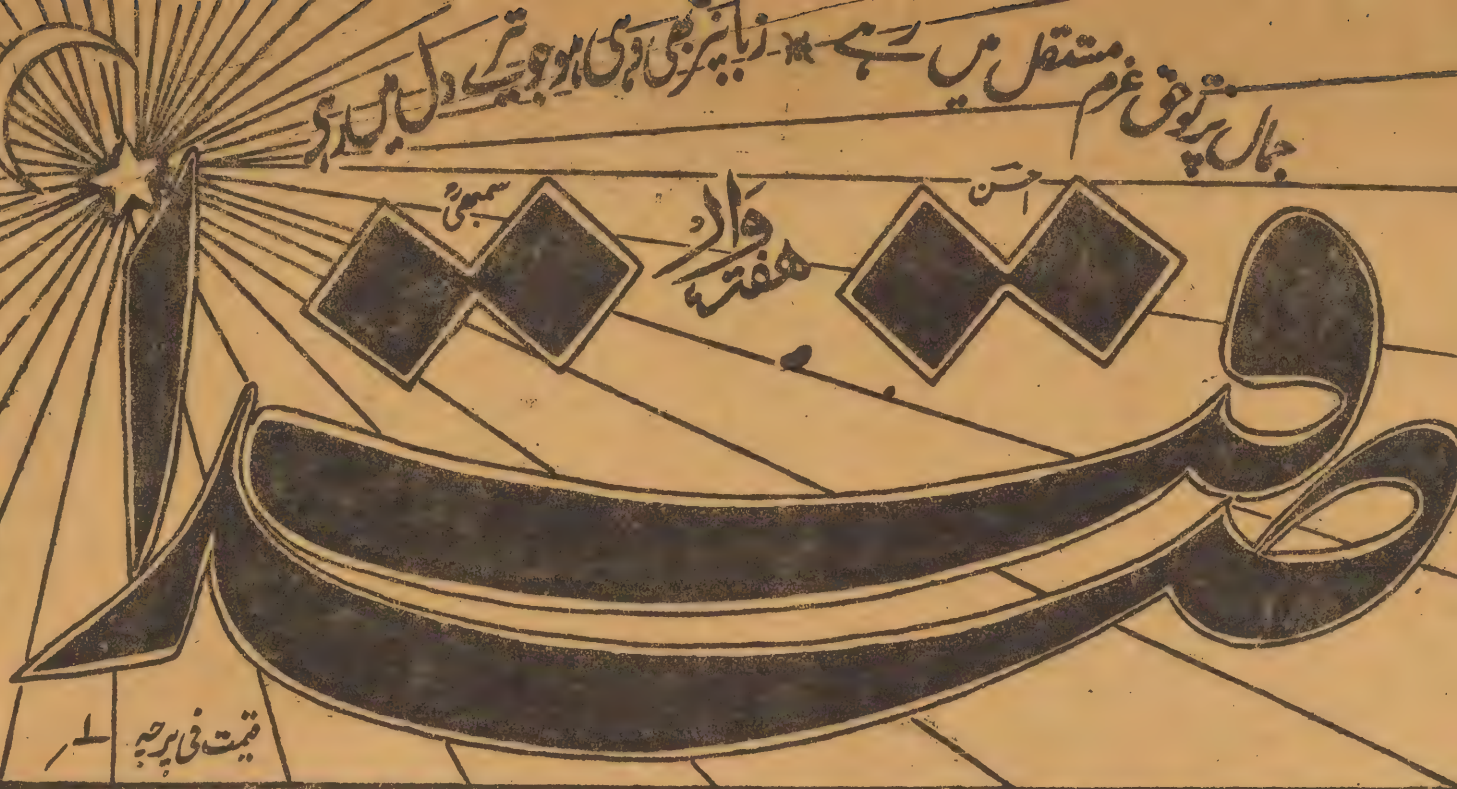 جمال پرتو حق عزم مستقل میں رہے * زبانپر بھی وہی ہو جو تیرے دل میں رہی
احسن
ھفتہ وار
صداقت
قیمت فی پرچہ ۱ر